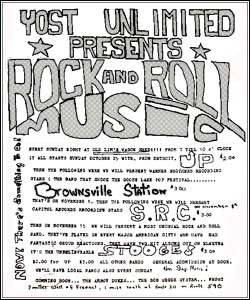 YOST UNLIMITED
PRESENTS
ROCK AND ROLL
MUSIC
NOW! There's Something To Do!
EVERY SUNDAY NIGHT AT OLD LIM'S WAGON SHED!!!! FROM 7 TILL 10 O' CLOCK
IT ALL STARTS SUNDAY OCTOBER 25 WITH, FROM DETROIT, UP $3.00
THEN THE FOLLOWING WEEK WE WILL PRESENT WARNER BROTHERS RECORDING
STARS ( THE BAND THAT SHOOK THE GOOSE LAKE POP FESTIVAL
Brownsville Station $3.00
THAT'S ON NOVEMBER 1. THEN THE FOLLOWING WEEK WE WILL PRESENT
CAPITOL RECORDS RECORDING STARS S.R.C. $3.00 november 8th
THEN ON NOVEMBER 15 WE WILL PRESENT A MOST UNUSUAL ROCK AND ROLL
BAND. THEY'VE PLAYED IN EVERY MAJOR AMERICAN CITY AND HAVE HAD
FANTASTIC GROUP REACTIONS. THEY HAVE TWO HIT ALBUMS OUT ON ELEKTRA
IT'S THE UNBELIEVABLE STOOGES
$2.00 FOR UP $3.00 ALL OTHER BANDS GENERAL ADMISSION AT DOOR.
WE'LL HAVE LOCAL BANDS ALSO EVERY SUNDAY
COMING SOON... THE AMBOY DUKES... THE BOB SEGER SYSTEM...